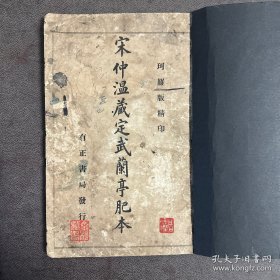 珂羅版精印
宋仲温藏定武蘭亭肥本
有正書局發行
孔夫子旧书网